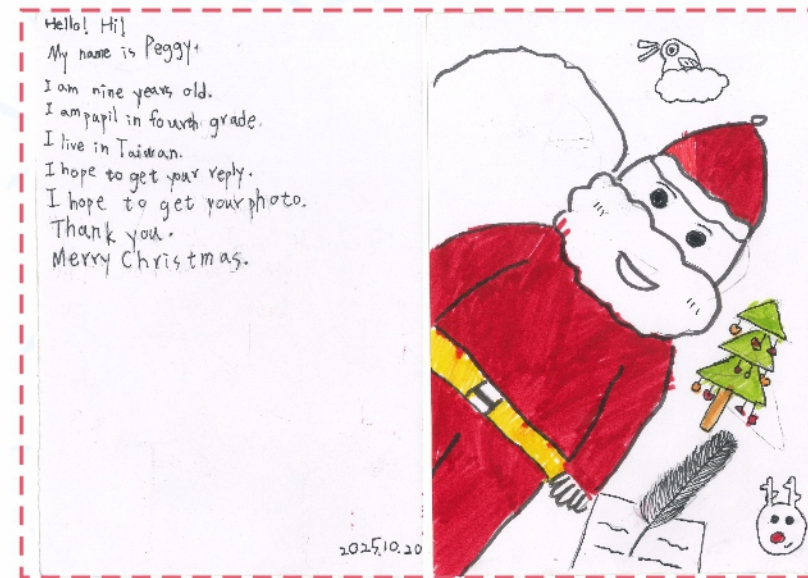 Hello! Hi!
My name is Peggy.
I am nine years old.
I am pupil in fourth grade.
I live in Taiwan.
I hope to get your reply.
I hope to get your photo.
Thank you.
Merry Christmas.
2025.10.20